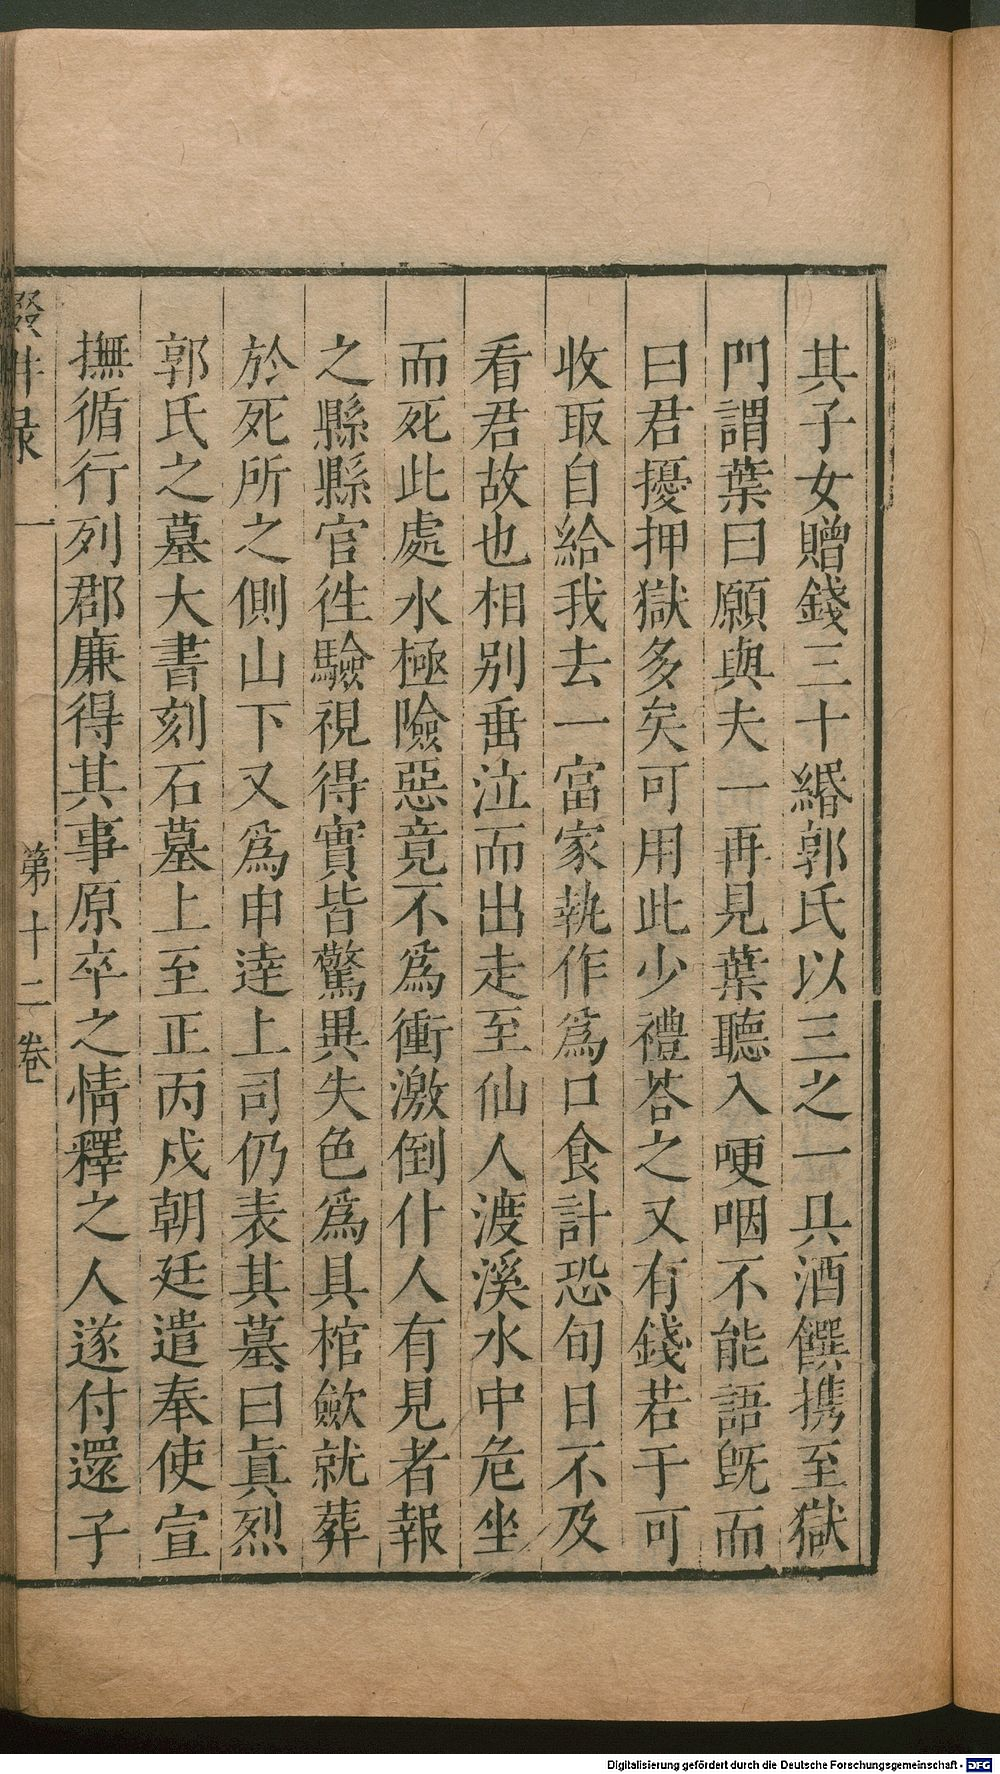 其子女贈錢三十緡郭氏以三之一具酒饌携至獄
門謂葉曰願與夫一再見葉聽入哽咽不能語旣而
曰君擾押獄多矣可用此少禮荅之又有錢若干可
收取自給我去一富家執作爲口食計恐旬日不及
看君故也相别垂泣而出走至仙人渡溪水中危坐
而死此處水極險惡竟不爲衝激倒仆人有見者報
之縣縣官徃驗視得實皆驚異失色爲具棺歛就葬
於死所之側山下又爲申逹上司仍表其墓曰眞烈
郭氏之墓大書刻石墓上至正丙戍朝廷遣奉使宣
撫循行列郡廉得其事原卒之情釋之人遂付還子
錄 一 第十二卷
Digitalisierung gefördert durch die Deutsche Forschungsgemeinschaft - DFG